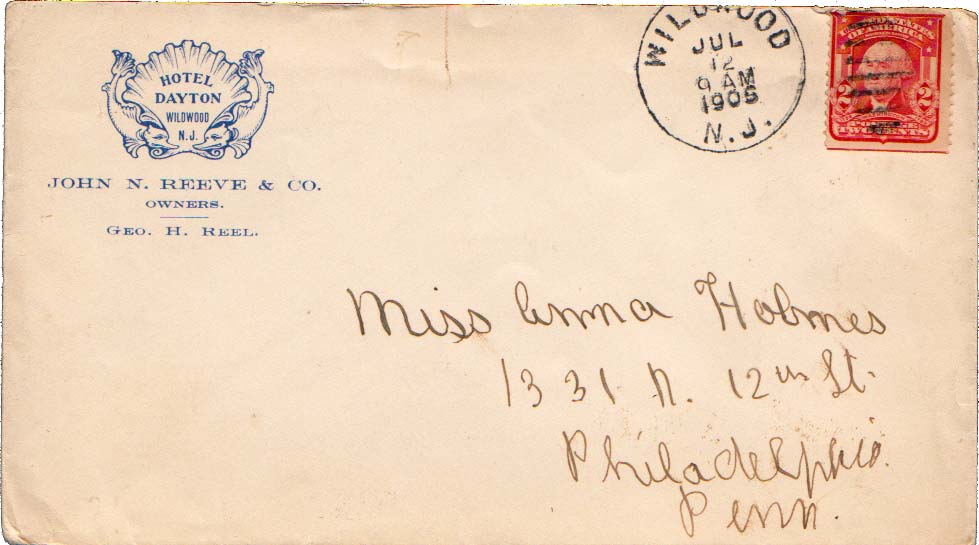 HOTEL
DAYTON
WILDWOOD
N.J.
JOHN N. REEVE & CO.
OWNERS.
GEO. H. REEL.
WILDWOOD
JUL
12
9 AM
N.J.
UNITED STATES
OF AMERICA
2 2
POSTAGE
TWO CENTS
Miss Anna Holmes
1331 N. 12th St.
Philadelphia.
Penn.